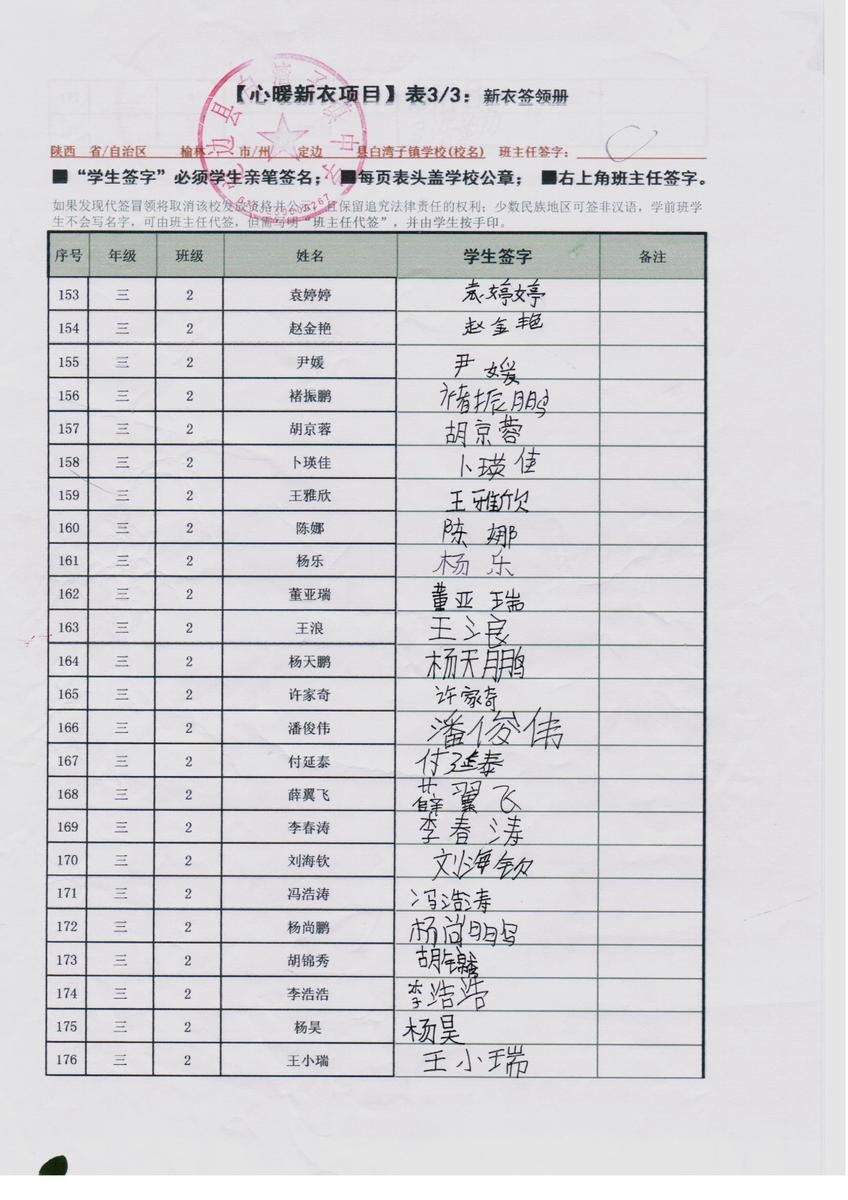 【心暖新衣项目】表3/3：新衣签领册
陕西 省/自治区 榆林 市/州 定边 县白湾子镇学校(校名) 班主任签字：
■“学生签字”必须学生亲笔签名； ■每页表头盖学校公章； ■右上角班主任签字。
如果发现代签冒领将取消该校发放资格并公示，且保留追究法律责任的权利；少数民族地区可签非汉语，学前班学
生不会写名字，可由班主任代签，但需写明“班主任代签”，并由学生按手印。
序号 年级 班级 姓名 学生签字 备注
153 三 2 袁婷婷 袁婷婷
154 三 2 赵金艳 赵金艳
155 三 2 尹媛 尹媛
156 三 2 褚振鹏 褚振鹏
157 三 2 胡京蓉 胡京蓉
158 三 2 卜瑛佳 卜瑛佳
159 三 2 王雅欣 王雅欣
160 三 2 陈娜 陈娜
161 三 2 杨乐 杨乐
162 三 2 董亚瑞 董亚瑞
163 三 2 王浪 王浪
164 三 2 杨天鹏 杨天鹏
165 三 2 许家奇 许家奇
166 三 2 潘俊伟 潘俊伟
167 三 2 付延泰 付延泰
168 三 2 薛翼飞 薛翼飞
169 三 2 李春涛 李春涛
170 三 2 刘海钦 刘海钦
171 三 2 冯浩涛 冯浩涛
172 三 2 杨尚鹏 杨尚鹏
173 三 2 胡锦秀 胡锦秀
174 三 2 李浩浩 李浩浩
175 三 2 杨昊 杨昊
176 三 2 王小瑞 王小瑞